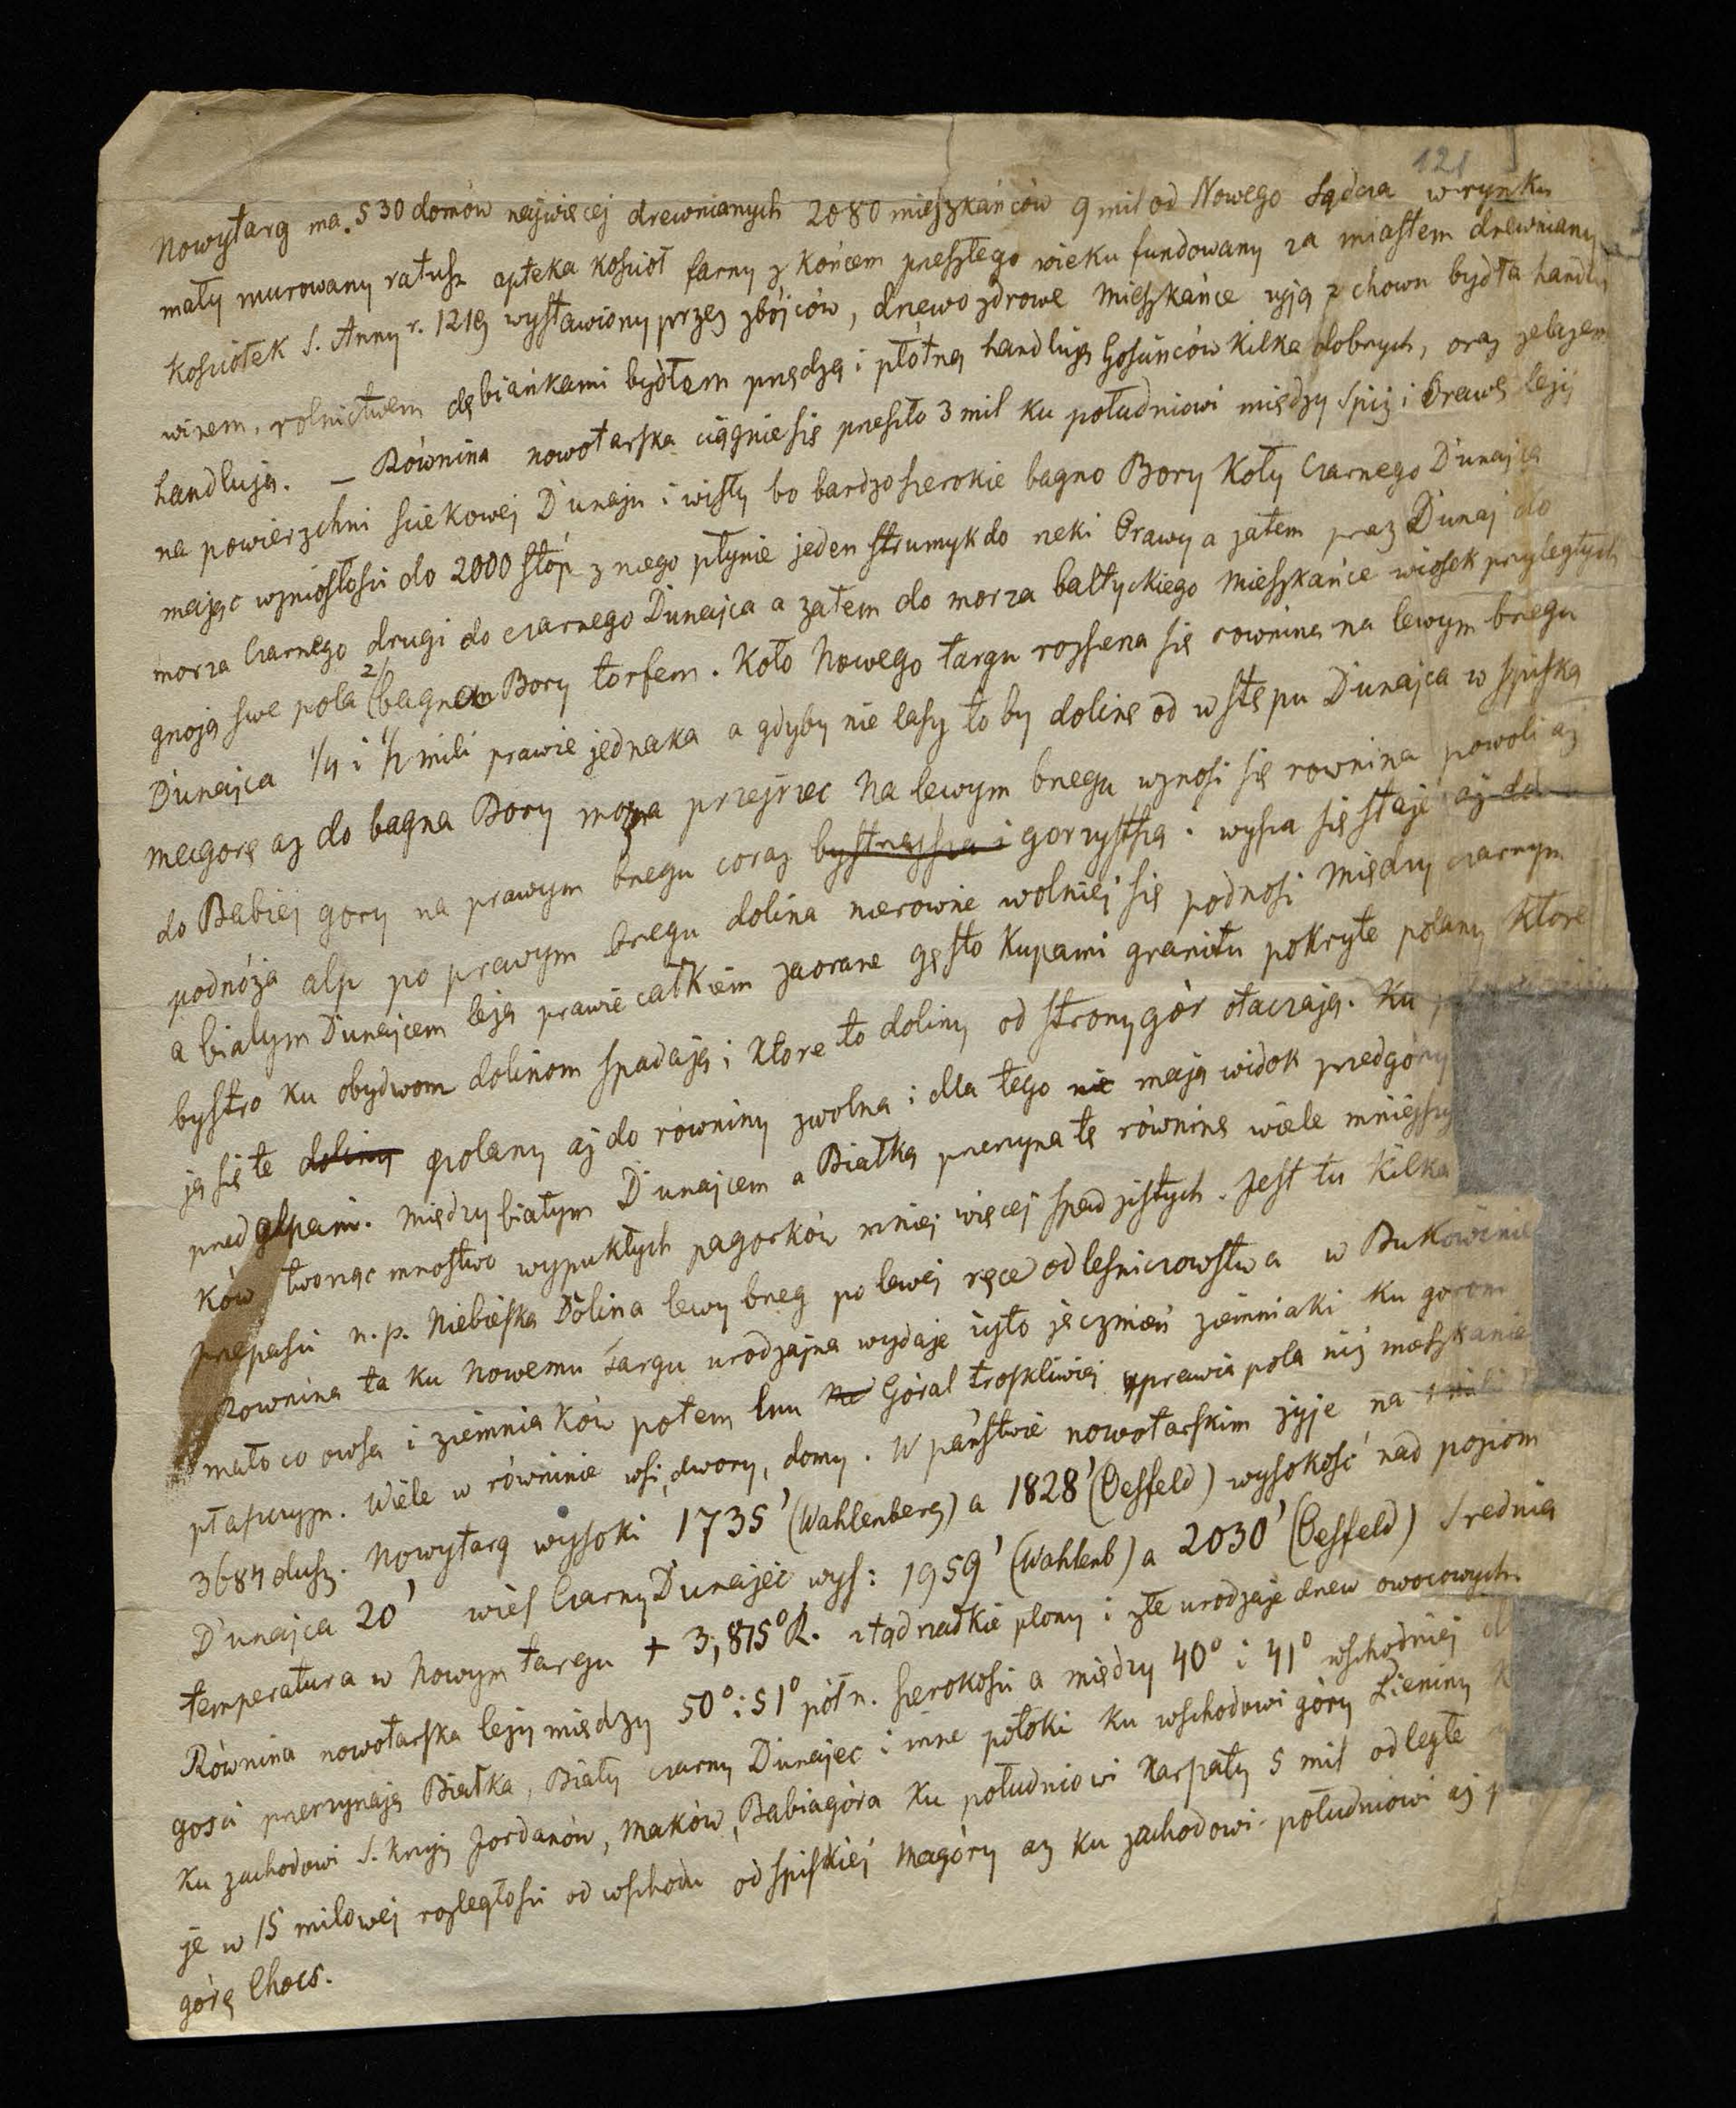 121
Nowytarg ma 530 domów najwięcej drewnianych 2080 mieszkańców 9 mil od Nowego Sądcza w rynku
mały murowany ratusz apteka kościoł farny z końcem preszłego wieku fundowany za miastem drewniany
kościołek S. Anny r. 1219 wystawiony przez zbójców, drzewo zdrowe Mieszkańce żyją z chowu bydła handlu
winem, rolnictwem dębiankami bydłem prędzą i płótną handlują Gościńców kilka dobrych, oraz żelazem
handlują. — Równina nowotarska ciągnie się preszło 3 mil ku południowi między Spiż i Orawę leży
na powierzchni ściekowej Dunaju i wisły bo bardzo szerokie bagno Bory koły Czarnego Dunajca
mając wzniosłości do 2000 stóp z niego płynie jeden strumyk do rzeki Orawy a zatem praz Dunaj do
morza Czarnego drugi do czarnego Dunajca a zatem do morza bałtyckiego Mieszkańce wiosek przyległych
gnoją swe pola 2/ bagnem Bory torfem. Koło Nowego targu rozszerza się rownina na lewym bregu
Dunajca 1/4 i 1/2 mili prawie jednaka a gdyby nie lasy to by dolinę od wstępu Dunajca w spiską
Magorę aż do bagna Bory można przejrzec Na lewym bregu wznosi się rownina powoli aż
do Babiej gory na prawym bregu coraz bystrzejsza i gorzystsza i wyższa się staje aż do
podnóża alp po prawym bregu dolina nierownie wolniej się podnosi Między czarnym
a białym Dunajcem leżą prawie całkiem zaorane gęsto kupami granitu pokryte polany ktore
bystro ku obydwom dolinom spadają i ktore to doliny od strony gór otaczają. Ku
ją się te doliny polany aż do równiny zwolna i dla tego nie mają widok predgórzy
pred alpami. Między białym Dunajcem a Białką prerzyna tę równinę wiele mniejszy
ków tworząc mnostwo wypukłych pagorków mniej więcej spadzistych. Jest tu kilka
prepaści n.p. Niebieska Dolina lewy breg po lewej ręce od leśniczowstwa w Bukowinie
Rownina ta ku Nowemu targu urodzajna wydaje żyto jęczmień ziemniaki ku gorom
mało co owsa i ziemniaków potem lnu Góral troskliwiej uprawia pola niż mieszkanie
płaszczyzn. Wiele w równinie wsi, dwory, domy. W państwie nowotarskim żyje na 1 mili
3684 dusz. Nowytarg wysoki 1735' (Wahlenberg) a 1828' (Oesfeld) wysokość nad poziom
Dunajca 20' wieś Czarny Dunajec wys: 1959' (Wahlenb) a 2030' (Oesfeld) Srednia
temperatura w Nowym targu + 3,875°R. ztąd rzadkie plony i złe urodzaje drzew owocowych.
Równina nowotarska leży między 50° i 51° półn. szerokości a między 40° i 41° wschodniej dł
gości prerzynają Białka, Biały czarny Dunajec i inne potoki ku wschodowi góry Pieniny
ku zachodowi S. krzyż Jordanów, Maków, Babiagóra ku południowi Karpaty 5 mil odległe
je w 15 milowej rozległości od wschodu od spiskiej Magóry aż ku zachodowi-południowi aż p
górę Chocs.